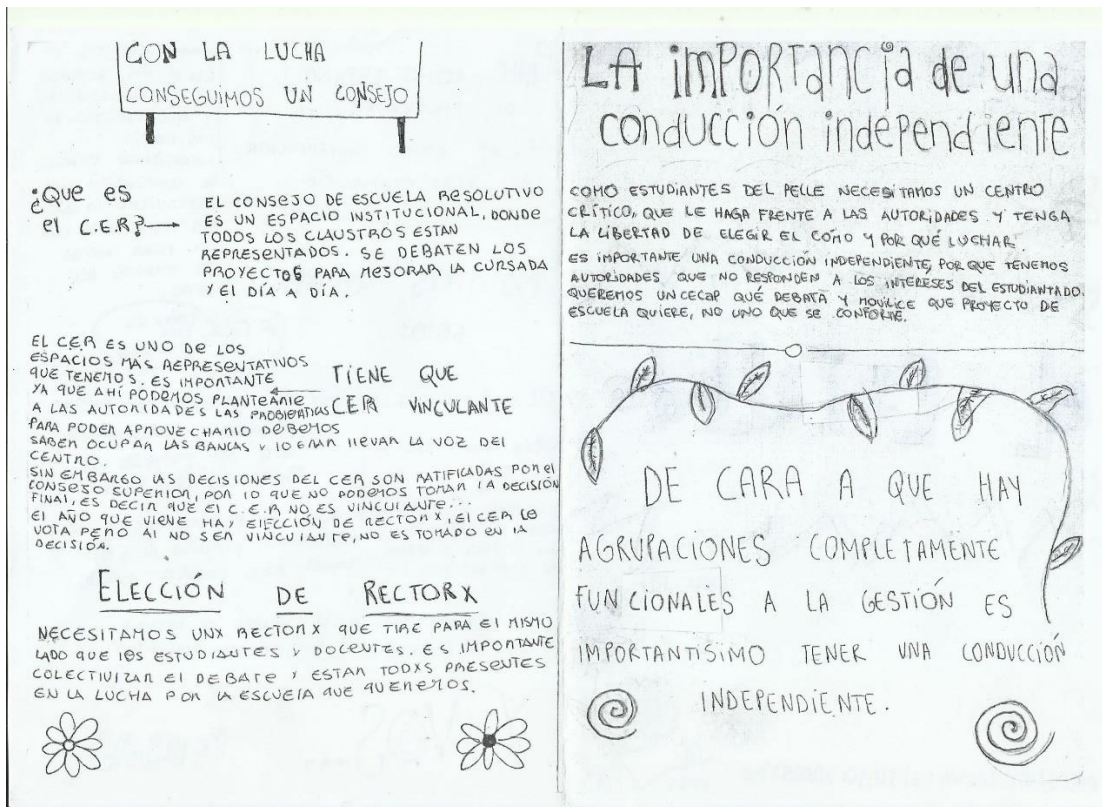 CON LA LUCHA
CONSEGUIMOS UN CONSEJO
¿Que es
el C.E.R?
EL CONSEJO DE ESCUELA RESOLUTIVO
ES UN ESPACIO INSTITUCIONAL, DONDE
TODOS LOS CLAUSTROS ESTAN
REPRESENTADOS. SE DEBATEN LOS
PROYECTOS PARA MEJORAR LA CURSADA
Y El DÍA A DÍA.
EL CER ES UNO DE LOS
ESPACIOS MÁS REPRESENTATIVOS
QUE TENEMOS. ES IMPORTANTE
YA QUE AHÍ PODEMOS PLANTEARLE
A LAS AUTORIDADES LAS PROBLEMATICAS
PARA PODER APROVECHARLO DEBEMOS
SABER OCUPAR LAS BANCAS Y LLEVAR LA VOZ DEL
CENTRO.
TIENE QUE
CER VINCULANTE
SIN EMBARGO LAS DECISIONES DEL CER SON RATIFICADAS POR el
CONSEJO SUPERIOR, POR LO QUE NO PODEMOS TOMAR LA DECISIÓN
FINAL, ES DECIR QUE El C.E.R NO ES VINCULANTE...
El AÑO QUE VIENE HAY ELECCIÓN DE RECTORX, El CER LO
VOTA PERO Al NO SER VINCULANTE, NO ES TOMADO EN LA
DECISIÓN.
ELECCIÓN DE RECTORX
NECESITAMOS UNX RECTORX QUE TIRE PARA El MISMO
LADO QUE lOS ESTUDIANTES Y DOCENTES. ES IMPORTANTE
COLECTIVIZAR El DEBATE Y ESTAR TODXS PRESENTES
EN LA LUCHA POR LA ESCUELA QUE QUEREMOS.
LA imPORTANCia de una
conducción independiente
COMO ESTUDIANTES DEL PELLE NECESITAMOS UN CENTRO
CRÍTICO, QUE LE HAGA FRENTE A LAS AUTORIDADES. Y TENGA
LA LIBERTAD DE ELEGIR EL CÓMO Y POR QUÉ LUCHAR.
ES IMPORTANTE UNA CONDUCCIÓN INDEPENDIENTE, POR QUE TENEMOS
AUTORIDADES QUE NO RESPONDEN A LOS INTERESES DEL ESTUDIANTADO.
QUEREMOS UN CECAP QUÉ DEBATA Y MOVILICE QUE PROYECTO DE
ESCUELA QUIERE, NO UNO QUE SE CONFORME.
DE CARA A QUE HAY
AGRUPACIONES COMPLETAMENTE
FUNCIONALES A LA GESTIÓN ES
IMPORTANTISIMO TENER UNA CONDUCCIÓN
INDEPENDIENTE.